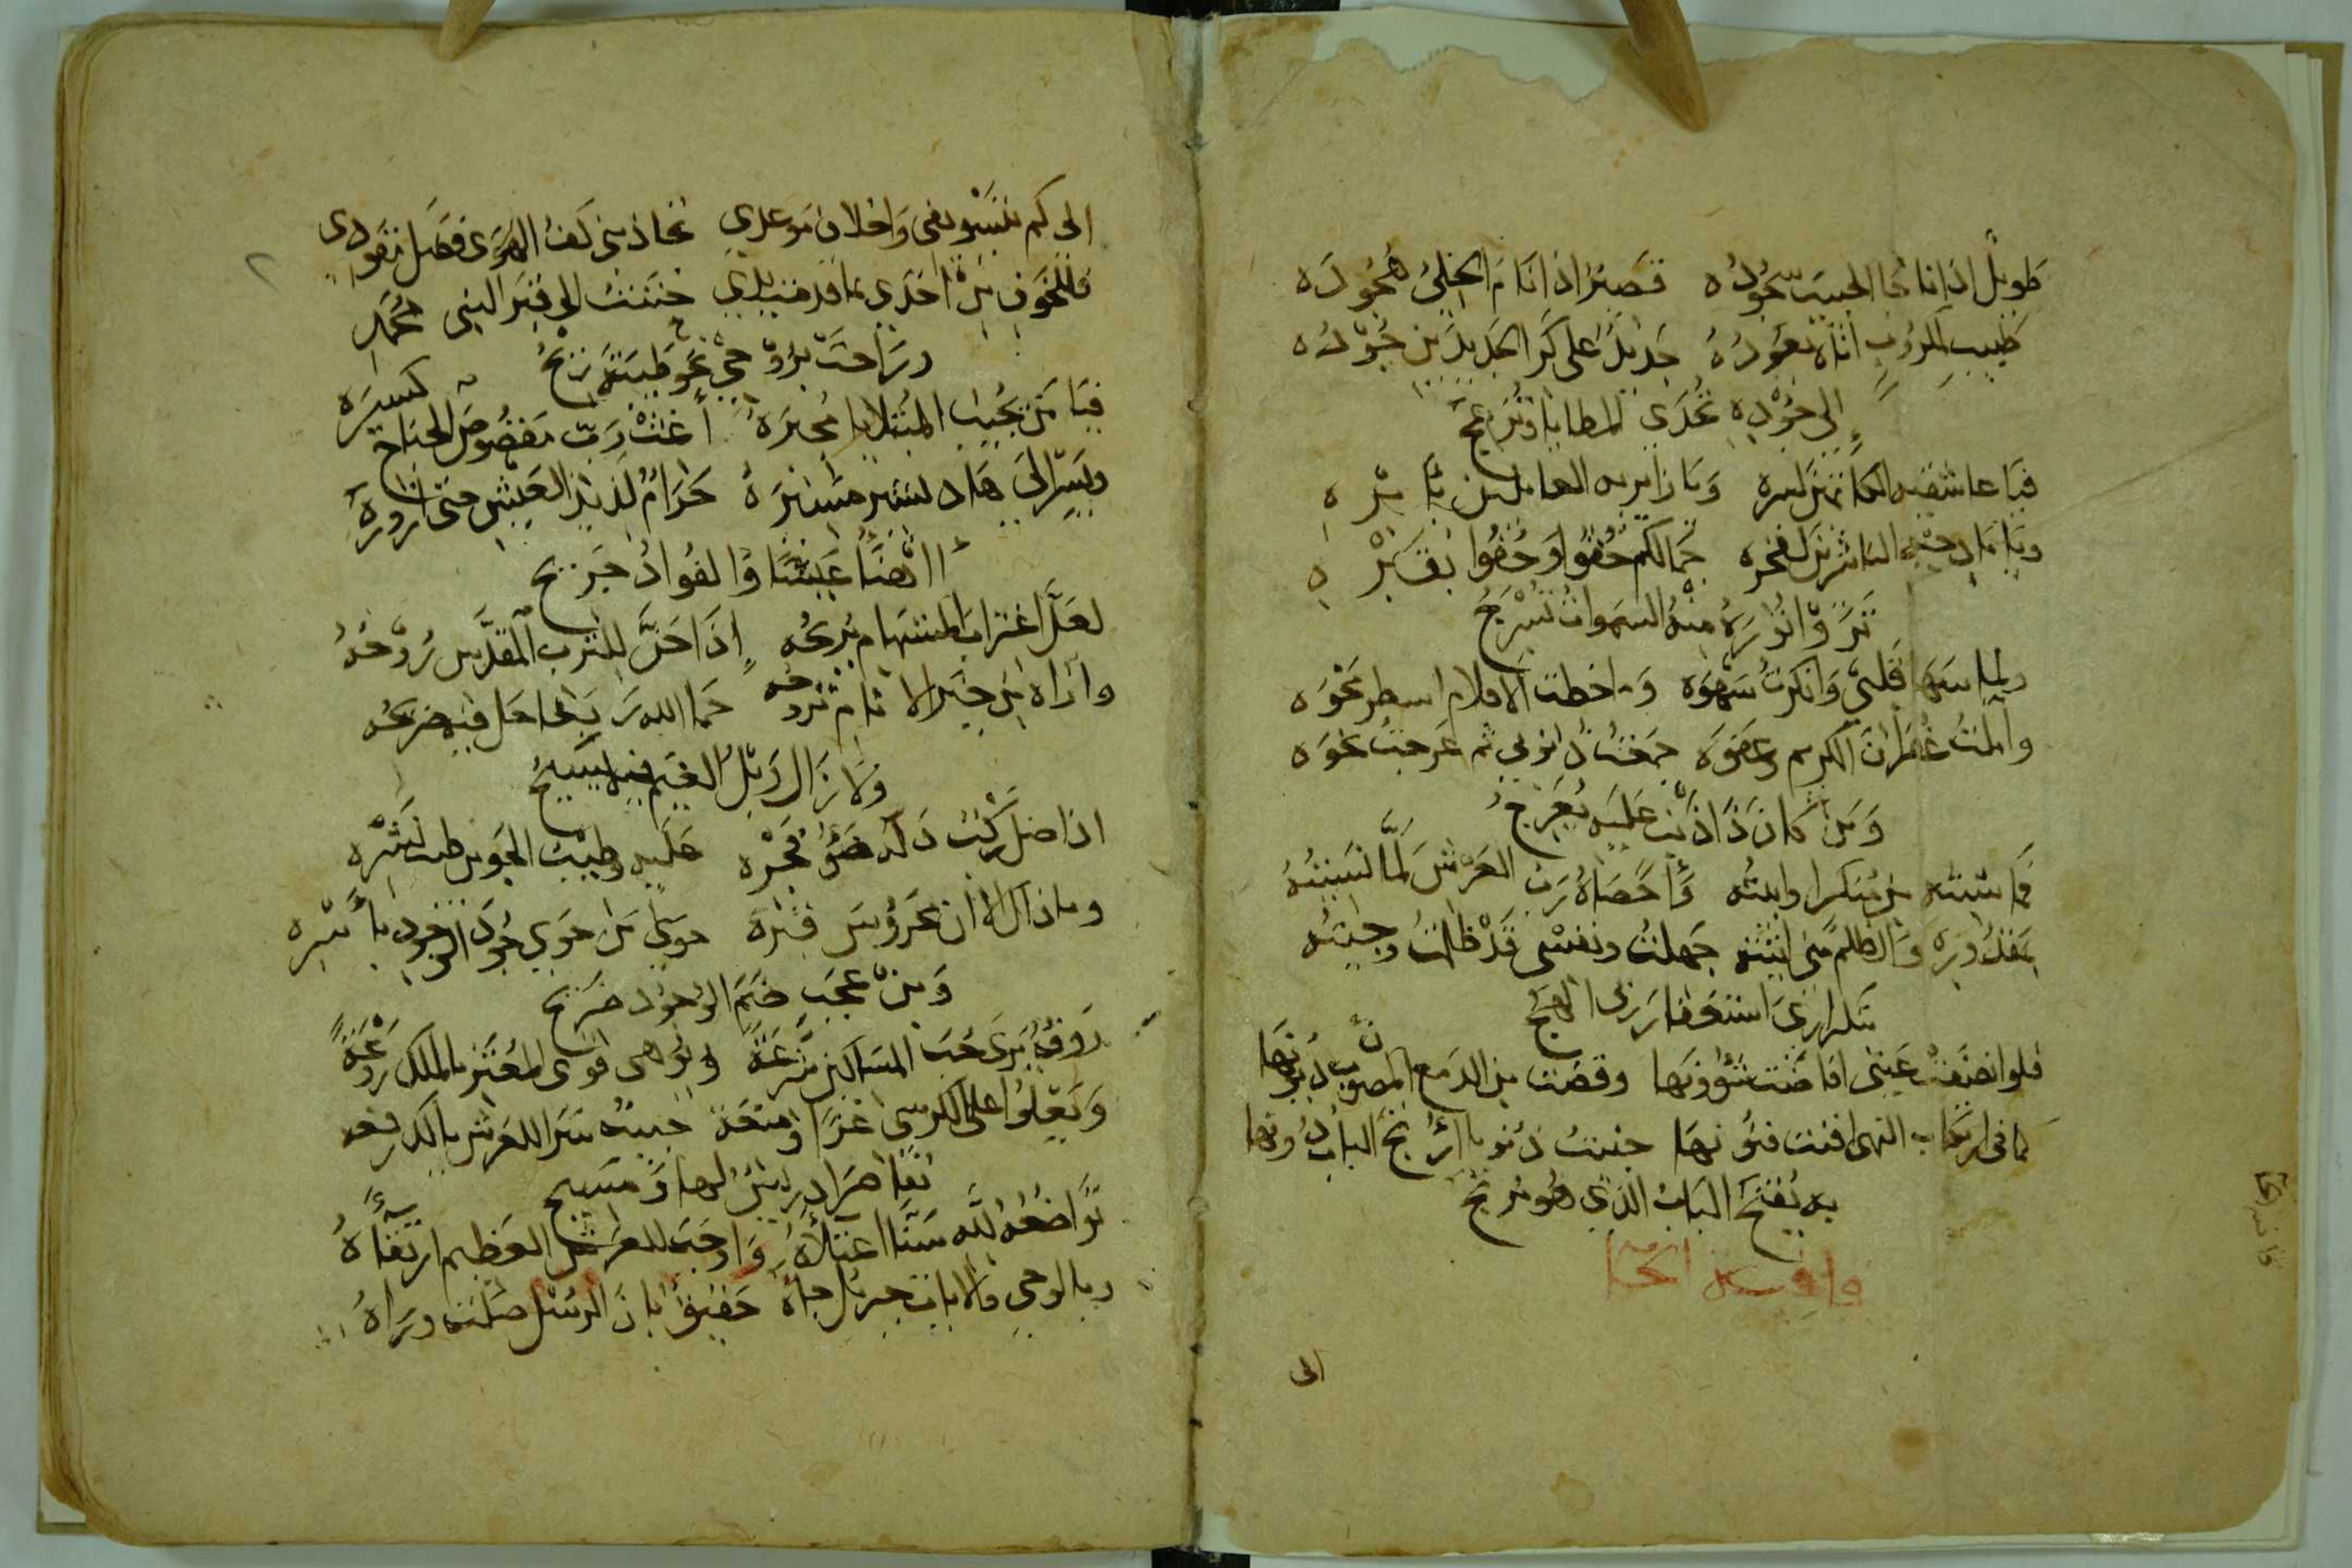 طويل اذا ناجا الحبيب سجوده قصير اذا نام الخلي هجوده
طبيب المكروب اتاه يعوده جديد على كر الجديدين جوده
إلى جوده تحدى المطايا وتزعج
فيا عاشقيه الكاتمين لسره ويا زايريه العاملين بأمره
ويا مادحيه الناشرين لفخره جمالكم حفوا وحفوا بقبره
تروا نوره منه السموات تسرج
ولما سها قلبي وانكرت سهوه وخطت الاقلام اسطر محوه
وأملت غفران الكريم وعفوه جمعت ذنوبي ثم عرجت نحوه
ومن كان ذا ذنب عليه يعرج
فما شئته من منكر واتيته وأحصاه رب العرش لما نسيته
بعذل وزر والظلم مني اتيته جهلت ونفسي قد ظلمت وجيته
بتكراري استغفار ربي الهج
فلو انصفت عيني افاضت شؤونها وقضت من الدمع المصون ديونها
كما في ارتكاب النهى افنت فنونها جنيت ذنوبا أرتج الباب دونها
به يفتح الباب الذي هو مرتج
قافية الحا
الى
الى كم بتسويفي واخلاف موعدي تجاذبني كف الهوى فضل مقودي
فللخوف من اخذي بما قدمت يدي حننت الى قبر النبي محمد
وراحت بروحي نحو طيبة ريح
فيا من يجيب المبتلا يا مجيره أغث رب مقصوص الجناح كسيره
ويسر الى هاد لبشر مسيره حرام لذيذ العيش حتى ازوره
أاهنا عيشا والفواد جريح
لعل اغتراب المستهام يريحه إذا حن للترب المقدس روحه
وآراه من خير الانام تروحه حما الله ربعا حل فيه ضريحه
ولا زال وبل الغيم فيه يسيح
اذا ضل ركب دله ضوء فجره عليه وطيب الجو من طيب نشره
وماذاك الا ان محروس قبره حوى من حوى جود الوجود بأسره
ومن عجب ضم الوجود ضريح
رؤف يرى حب المساكين شرعة ونواهي قوى المعتز بالملك روعة
ويعلوا على الكرسي عزا ومنعة حبيب سرا للعرش بالك رفعة
تقاصر ادريس لها ومسيح
تواضعه لله سنا اعتلاه واوجب للعرش العظيم ارتقاه
وبالوحي والايات جبريل جاه حقيق بان الرسل صلت وراه